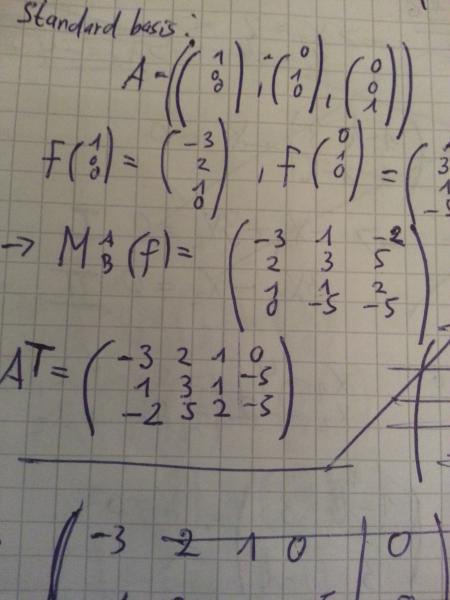 Standard basis:
A = ((1 0 0), (0 1 0), (0 0 1))
f(1 0 0) = (-3 2 1 0), f(0 1 0) = (
→ M A B (f) = (-3 1 -2
2 3 5
1 1 2
0 -5 -5)
A^T = (-3 2 1 0
1 3 1 -5
-2 5 2 -5)
(-3 2 1 0 | 0